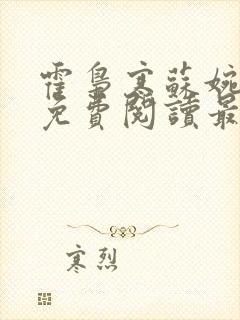 霍梟寒蘇婉
免費閱讀最
寒烈